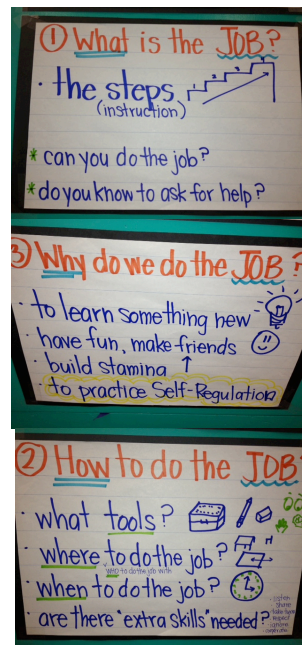 ① What is the JOB?
· the steps
(instruction)
* can you do the job?
* do you know to ask for help?
③ Why do we do the JOB?
· to learn something new
· have fun, make friends
· build stamina ↑
· to practice Self-Regulation
② How to do the JOB
· what tools?
· where to do the job?
WHO to do the job with
· when to do the job?
· are there "extra skills" needed?